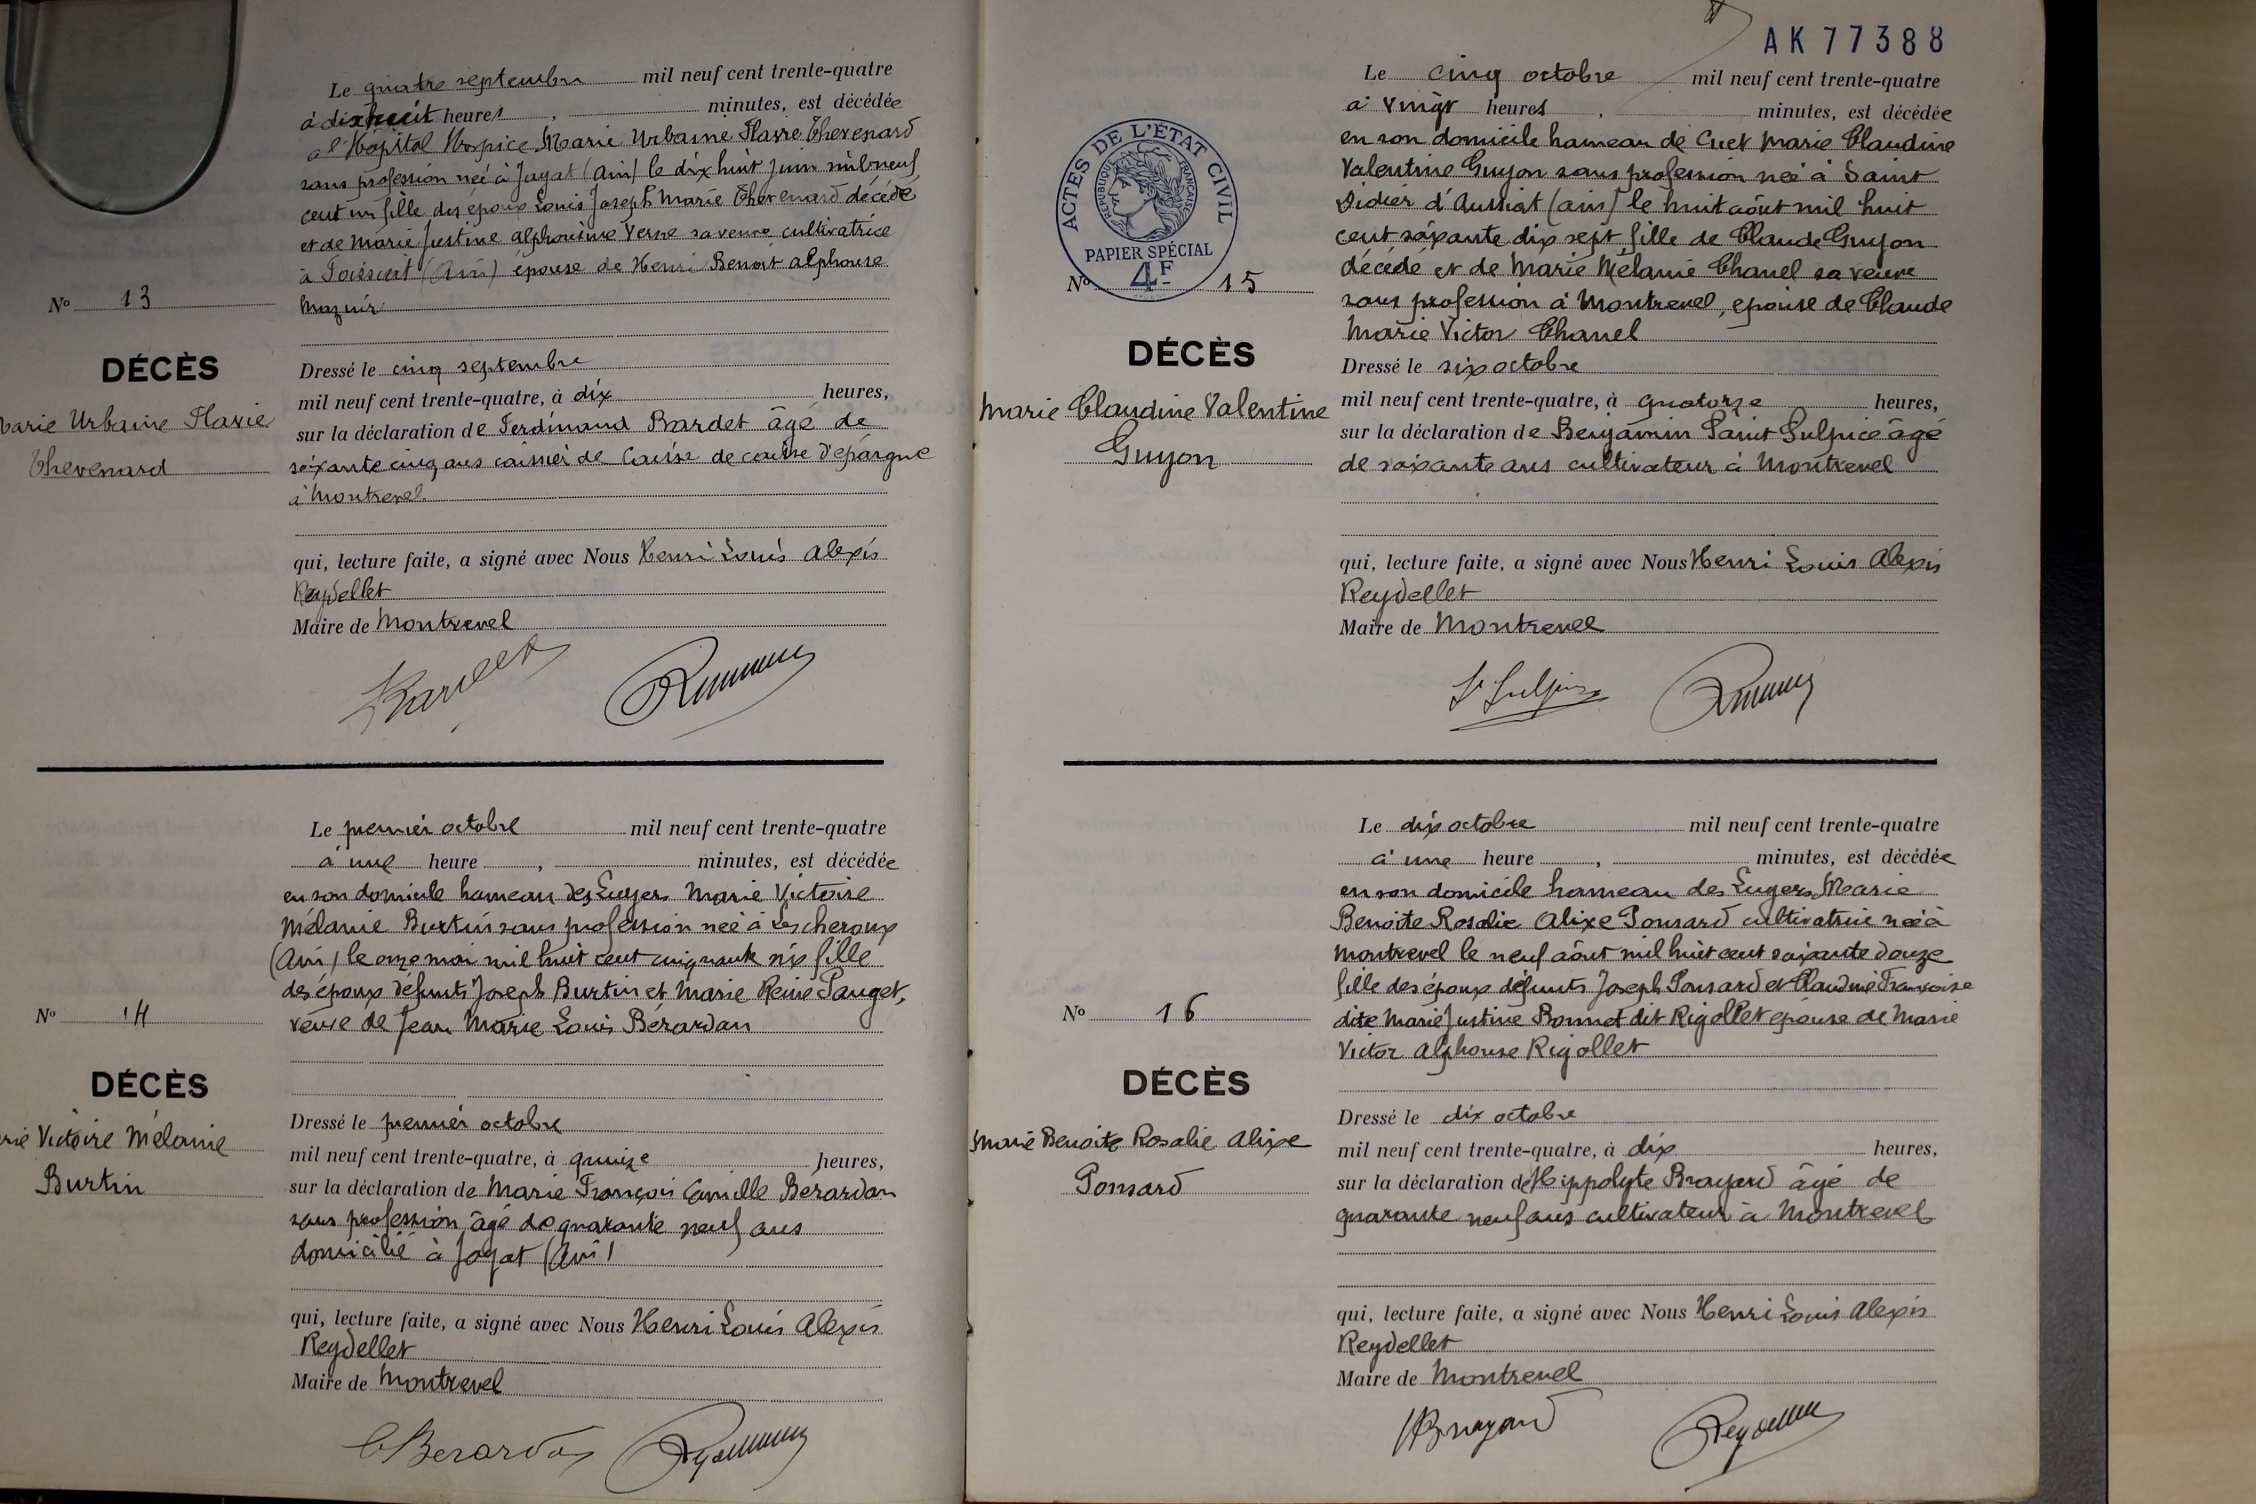 Le quatre septembre mil neuf cent trente-quatre
à dixhuit heures , minutes, est décédée
à l'Hôpital Hospice Marie Urbaine Flavie Thevenard
sans profession née à Jayat (Ain) le dix huit juin mil neuf
cent un fille des époux Louis Joseph Marie Thevenard décédé
et de Marie Justine Alphonsine Verne sa veuve cultivatrice
à Foissiat (Ain) épouse de Henri Benoit Alphonse
Mazuir
N° 13
DÉCÈS
Marie Urbaine Flavie
Thevenard
Dressé le cinq septembre
mil neuf cent trente-quatre, à dix heures,
sur la déclaration de Ferdinand Bardet âgé de
soixante cinq ans caissier de Caisse de d'épargne
à Montrevel
qui, lecture faite, a signé avec Nous Henri Louis Alexis
Reydellet
Maire de Montrevel
Le premier octobre mil neuf cent trente-quatre
à une heure , minutes, est décédée
en son domicile hameau des Luyers Marie Victoire
Mélanie Burtin sans profession née à Lescheroux
(Ain) le onze mai mil huit cent cinquante six fille
des époux défunts Joseph Burtin et Marie Reine Pauget,
veuve de Jean Marie Louis Bérardan
N° 14
DÉCÈS
rie Victoire Mélanie
Burtin
Dressé le premier octobre
mil neuf cent trente-quatre, à quinze heures,
sur la déclaration de Marie François Camille Berardan
sans profession âgé de quarante neuf ans
domicilié à Jayat (Ain)
qui, lecture faite, a signé avec Nous Henri Louis Alexis
Reydellet
Maire de Montrevel
C Berardan
AK 77388
Le cinq octobre mil neuf cent trente-quatre
à vingt heures , minutes, est décédée
en son domicile hameau de Cuet Marie Claudine
Valentine Guyon sans profession née à Saint
Didier d'Aussiat (ain) le huit août mil huit
cent soixante dix sept fille de Claude Guyon
décédé et de Marie Mélanie Chanel sa veuve
sans profession à Montrevel, épouse de Claude
Marie Victor Chanel
ACTES DE L'ÉTAT CIVIL
RÉPUBLIQUE FRANÇAISE
PAPIER SPÉCIAL
4F
N° 15
DÉCÈS
Marie Claudine Valentine
Guyon
Dressé le six octobre
mil neuf cent trente-quatre, à quatorze heures,
sur la déclaration de Benjamin Saint Sulpice âgé
de soixante ans cultivateur à Montrevel
qui, lecture faite, a signé avec Nous Henri Louis Alexis
Reydellet
Maire de Montrevel
St Sulpice
Le dix octobre mil neuf cent trente-quatre
à une heure , minutes, est décédée
en son domicile hameau des Luyers Marie
Benoite Rosalie Alixe Ponsard cultivatrice née à
Montrevel le neuf août mil huit cent soixante douze
fille des époux défunts Joseph Ponsard et Claudine Françoise
dite Marie Justine Bonnet dit Rigollet épouse de Marie
Victor Alphonse Rigollet
N° 16
DÉCÈS
Marie Benoite Rosalie Alixe
Ponsard
Dressé le dix octobre
mil neuf cent trente-quatre, à dix heures,
sur la déclaration de Hippolyte Broyard âgé de
quarante neuf ans cultivateur à Montrevel
qui, lecture faite, a signé avec Nous Henri Louis Alexis
Reydellet
Maire de Montrevel
HBroyard
Reydellet